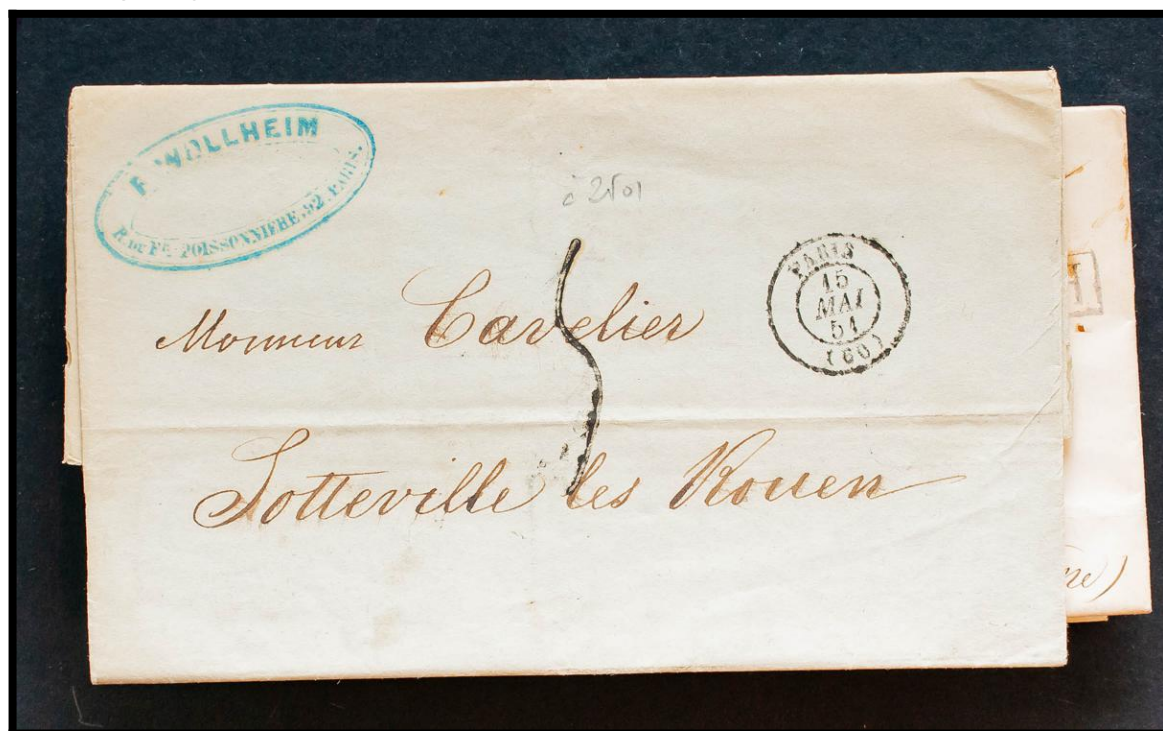 WOLLHEIM
R. DU Fg. POISSONNIÈRE, 92, PARIS.
PARIS
15
MAI
51
(60)
Monsieur Cavelier
Sotteville les Rouen